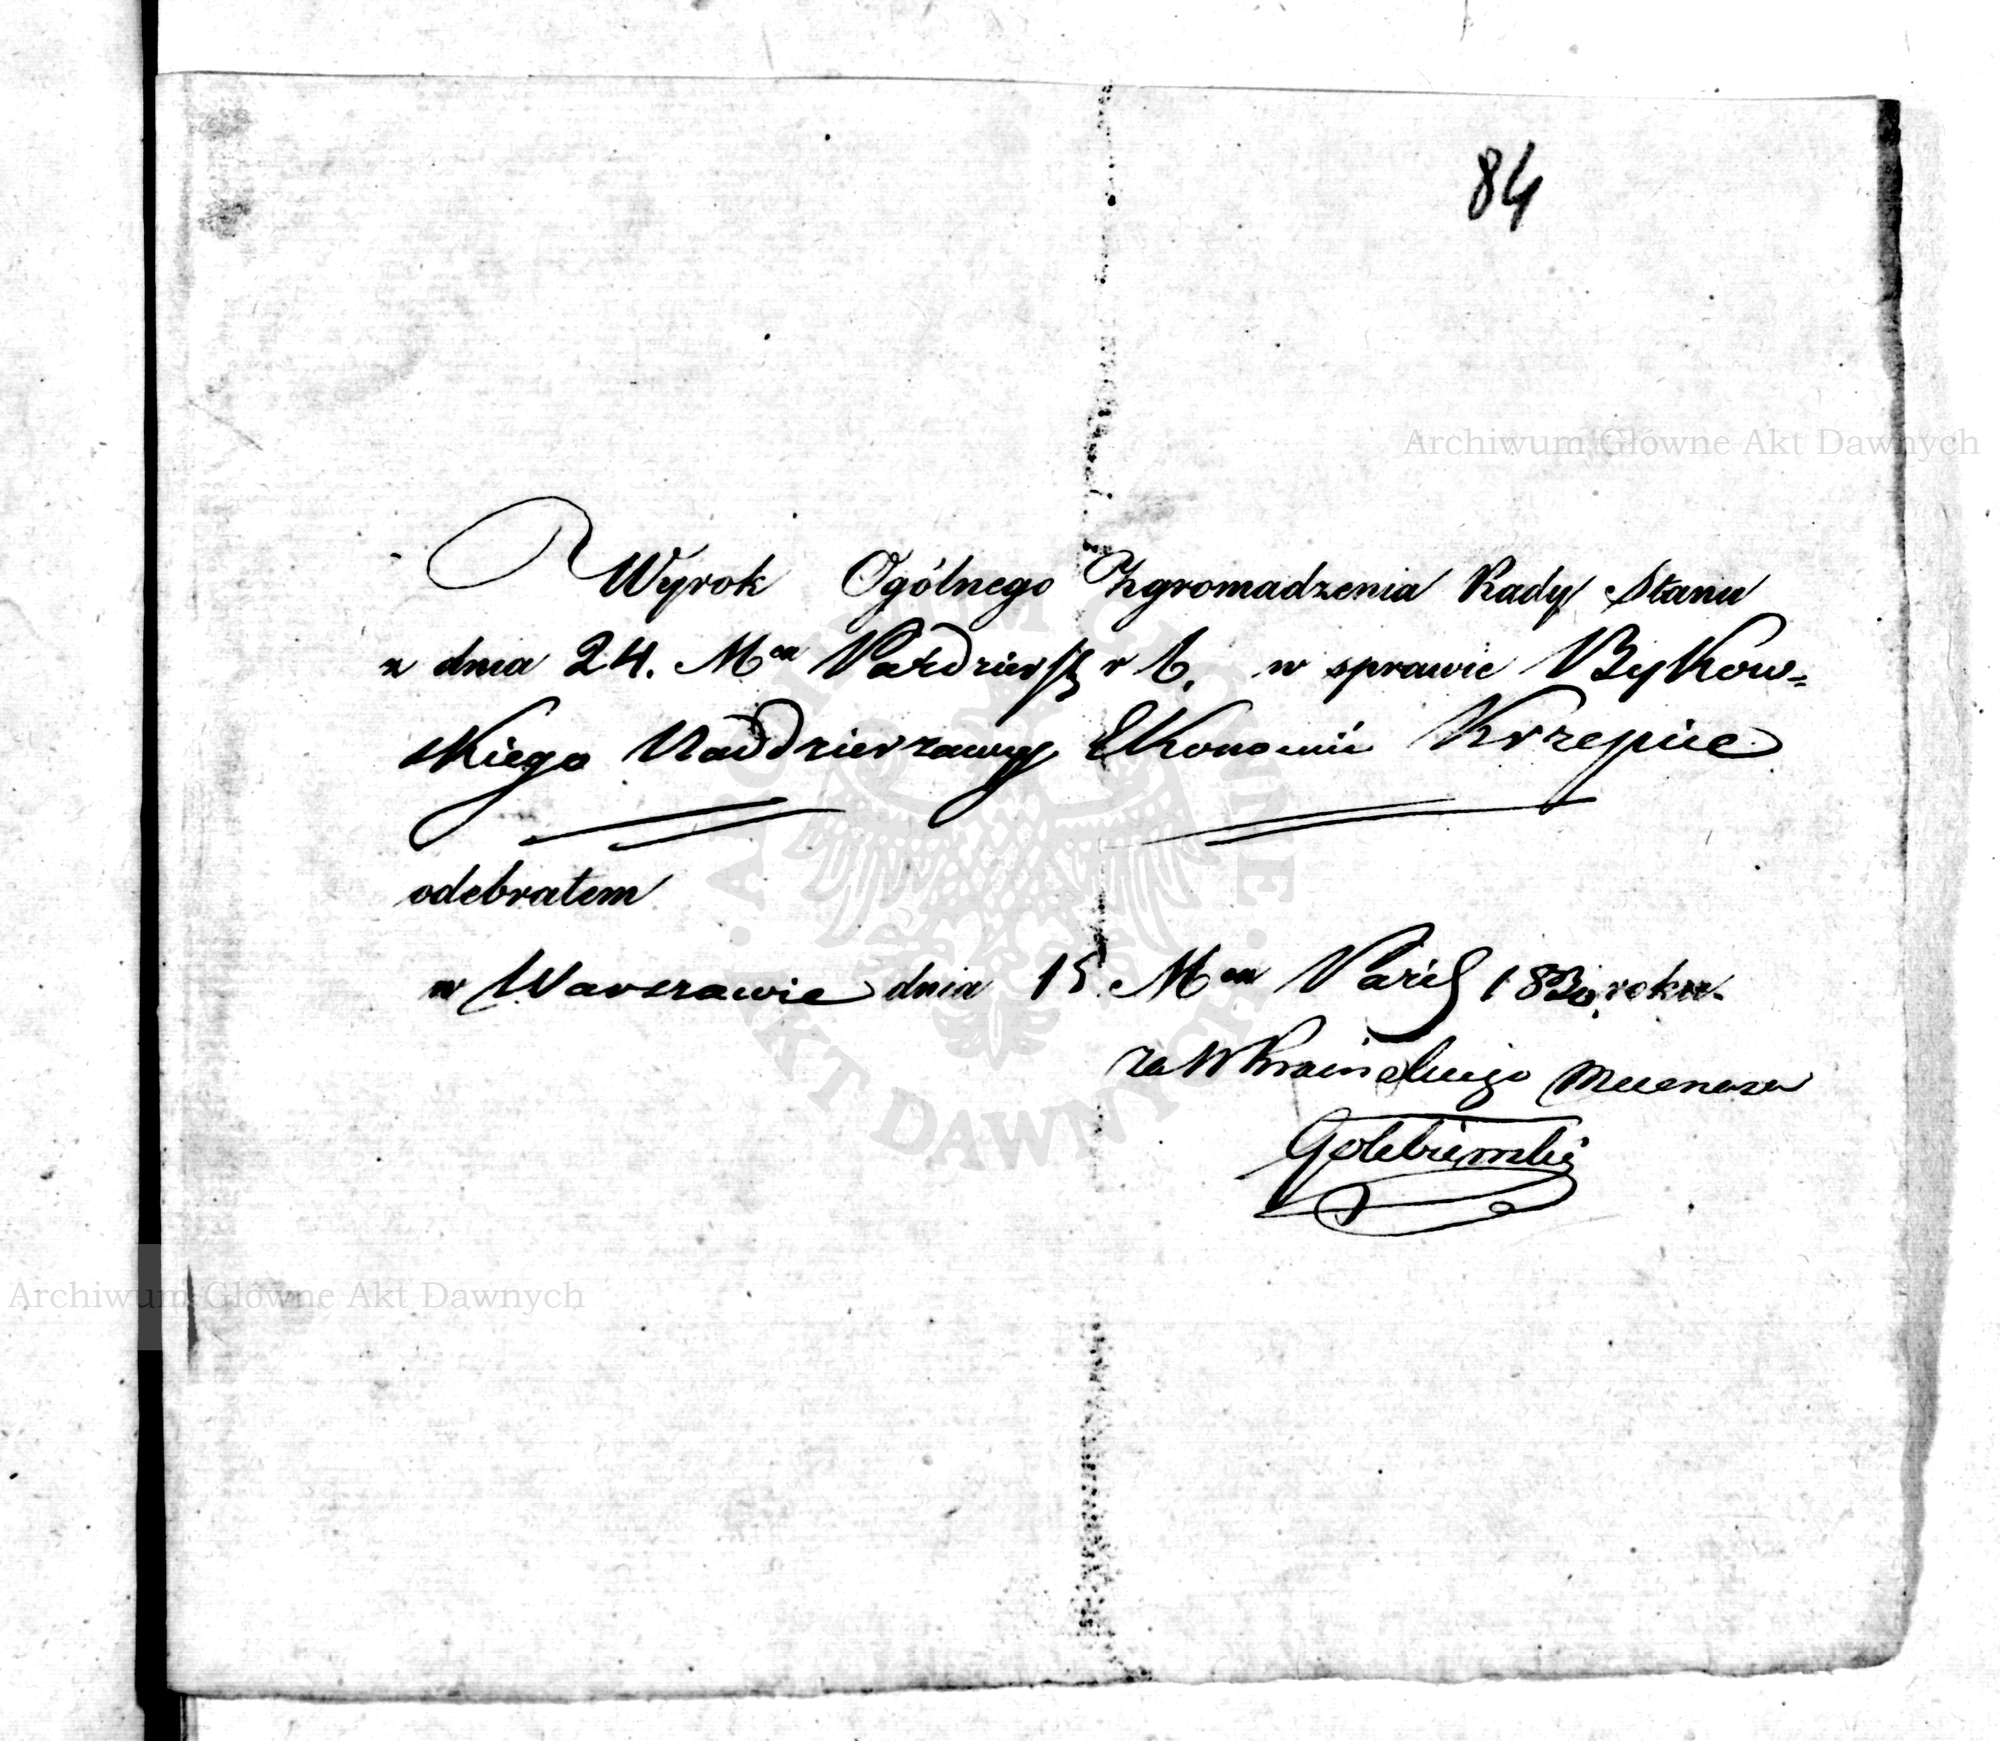 84
Archiwum Główne Akt Dawnych
Wyrok Ogólnego Zgromadzenia Rady Stanu
z dnia 24. Mca r b. w sprawie Bykow=
skiego Naddzierzawcy Ekonomii Krzepice
odebrałem
w Warszawie dnia 15. Mca Paźd 1830, roku.
za Mecenasa
Gołębiewski
Archiwum Główne Akt Dawnych
ARCHIWUM GŁÓWNE · AKT DAWNYCH ·